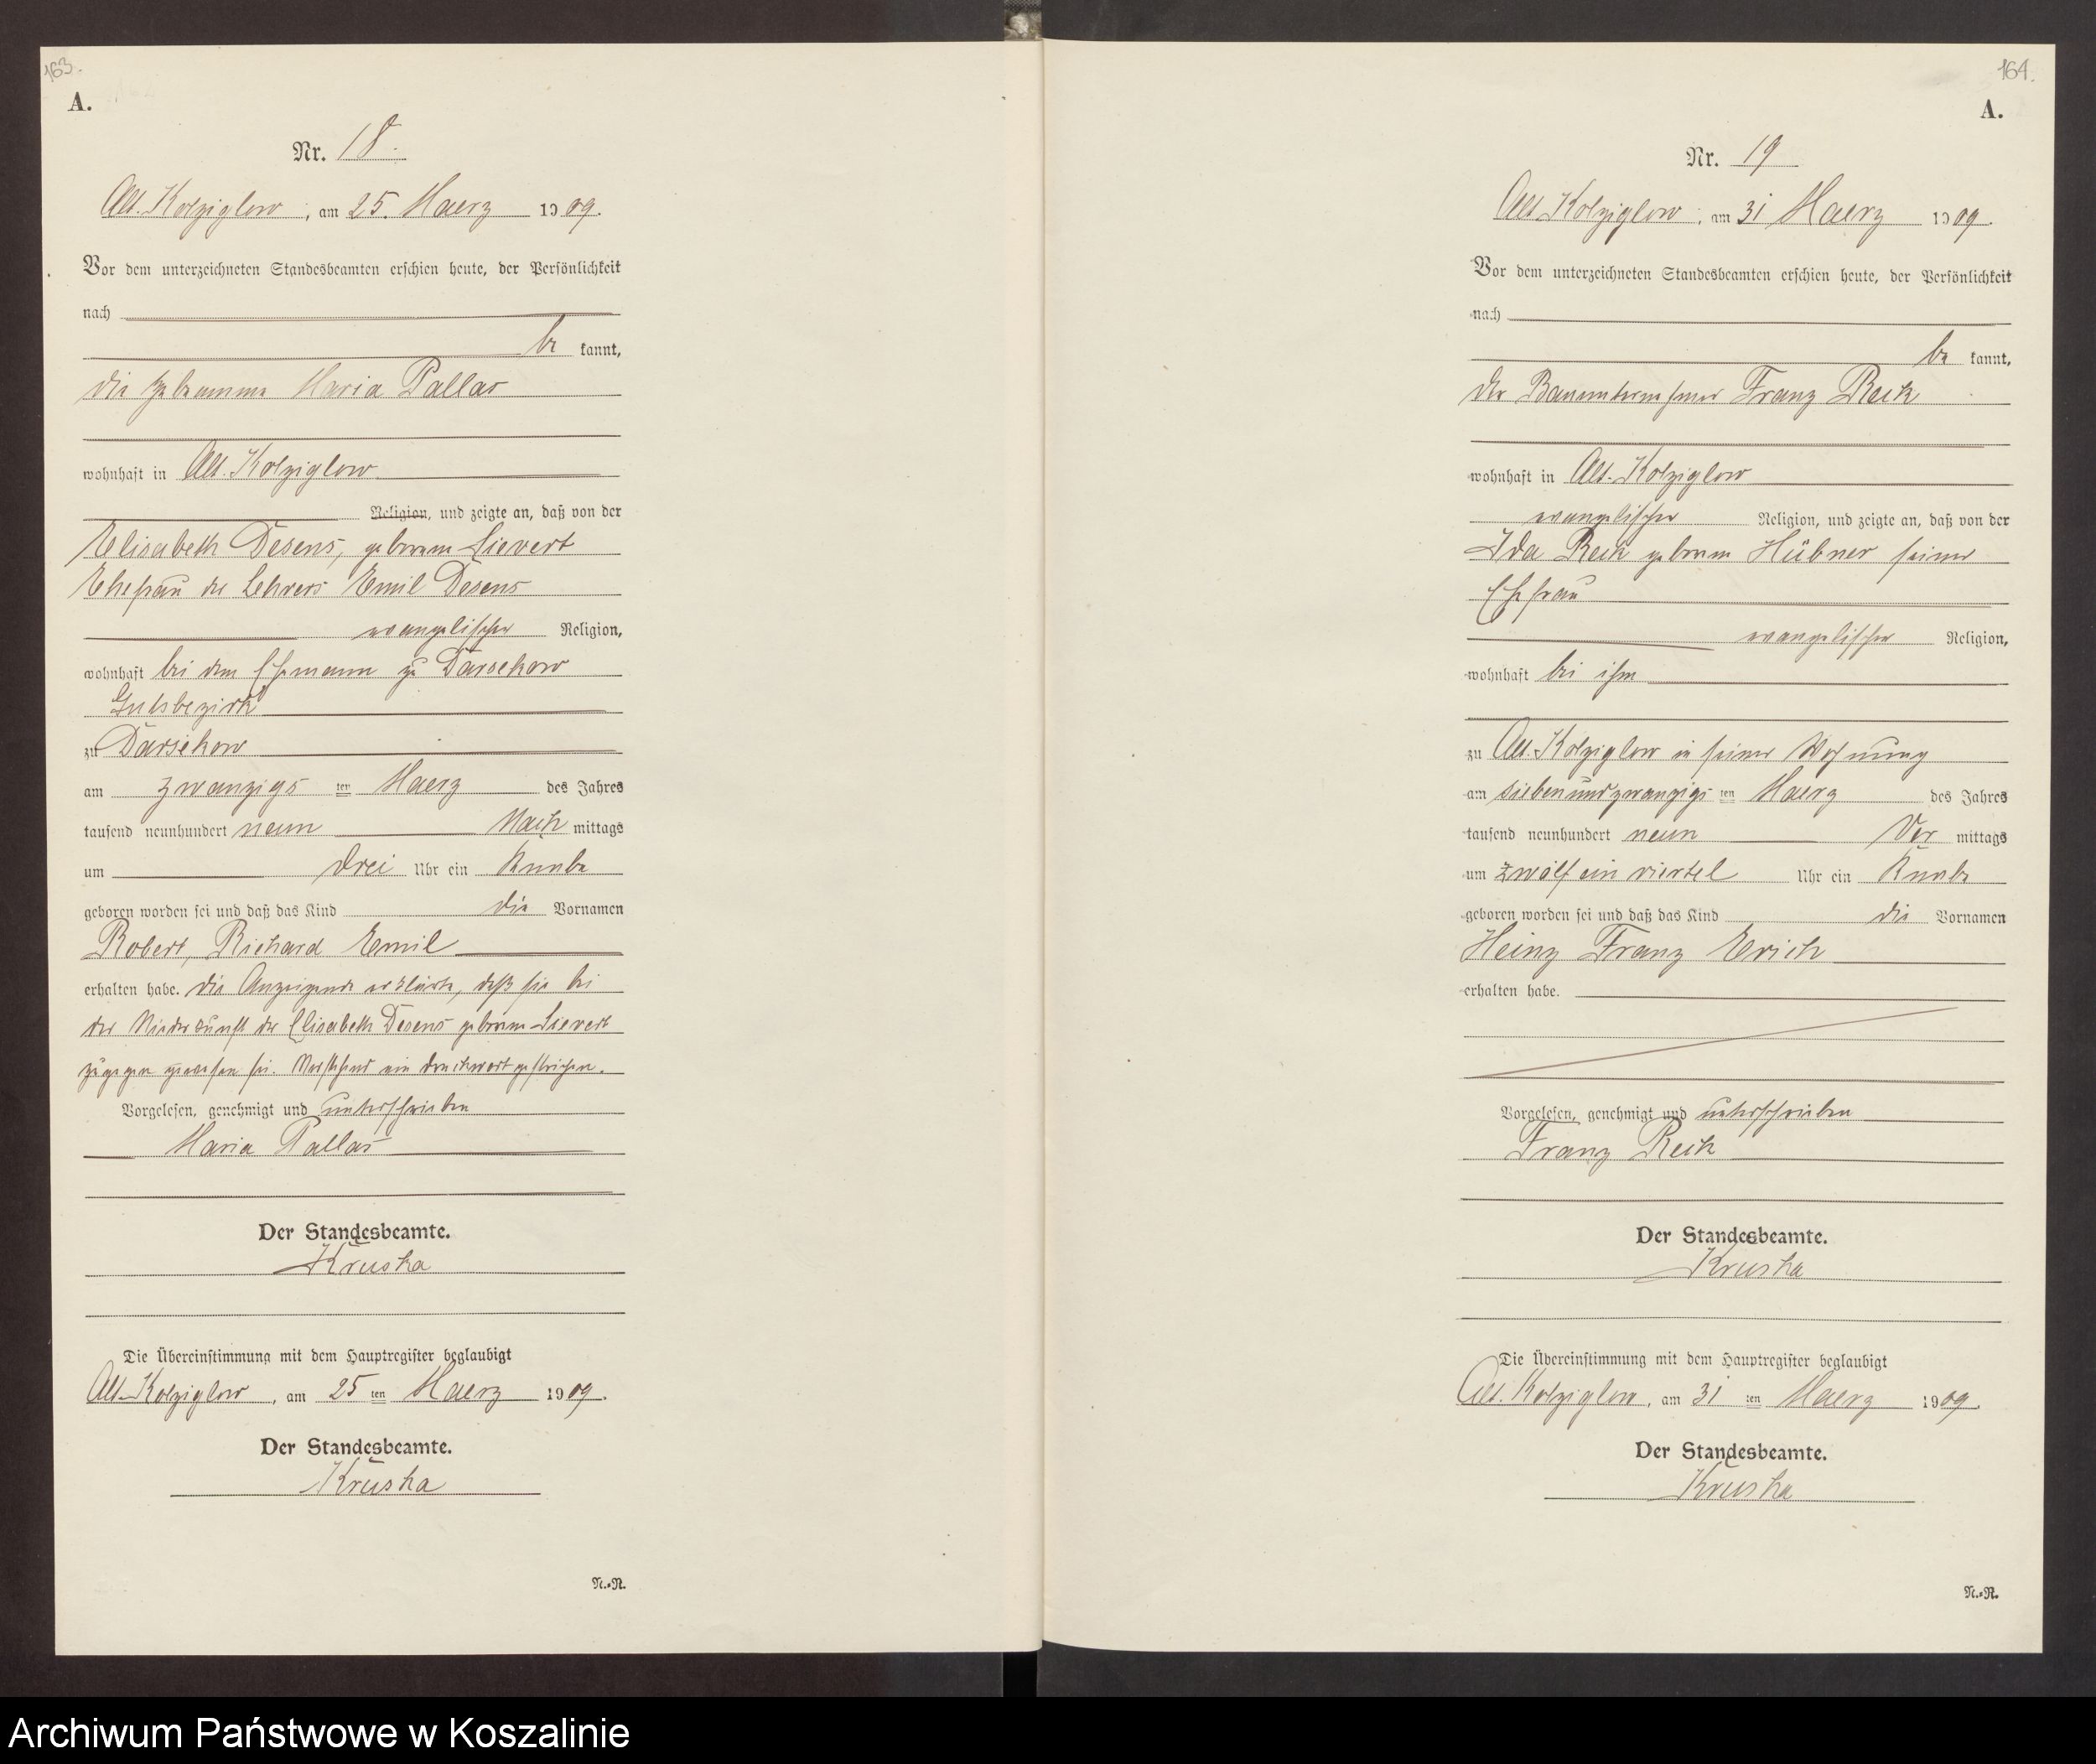 163.
A.
Nr. 18.
Alt. Kolziglow, am 25. Maerz 1909.
Vor dem unterzeichneten Standesbeamten erschien heute, der Persönlichkeit
nach
be kannt,
die Hebamme Maria Pallas
wohnhaft in Alt. Kolziglow.
Religion, und zeigte an, daß von der
Elisabeth Desens, geborene Sievert
Ehefrau des Lehrers Emil Desens
evangelischer Religion,
wohnhaft bei dem Ehemann zu Darsekow
Gutsbezirk
zu Darsekow
am zwanzigs ten Maerz des Jahres
tausend neunhundert neun Nach mittags
um drei Uhr ein Knabe
geboren worden sei und daß das Kind die Vornamen
Robert, Richard Emil
erhalten habe. Die Anzeigende erklärte, daß sie bei
der Niederkunft der Elisabeth Desens geborene Sievert
zugegen gewesen sei. Vorstehend ein Druckwort gestrichen.
Vorgelesen, genehmigt und unterschrieben
Maria Pallas
Der Standesbeamte.
Kruska
Die Übereinstimmung mit dem Hauptregister beglaubigt
Alt-Kolziglow, am 25 ten Maerz 1909.
Der Standesbeamte.
Kruska
N.=R.
164.
A.
Nr. 19
Alt. Kolziglow, am 31 Maerz 1909.
Vor dem unterzeichneten Standesbeamten erschien heute, der Persönlichkeit
nach
be kannt,
der Bauunternehmer Franz Reck
wohnhaft in Alt-Kolziglow
evangelischer Religion, und zeigte an, daß von der
Ida Reck geborene Hübner seiner
Ehefrau
evangelischer Religion,
wohnhaft bei ihm
zu Alt. Kolziglow in seiner Wohnung
am siebenundzwanzigs ten Maerz des Jahres
tausend neunhundert neun Vor mittags
um zwölf ein viertel Uhr ein Knabe
geboren worden sei und daß das Kind die Vornamen
Heinz Franz Erich
erhalten habe.
Vorgelesen, genehmigt und unterschrieben
Franz Reck
Der Standesbeamte.
Kruska
Die Übereinstimmung mit dem Hauptregister beglaubigt
Alt. Kolziglow, am 31 ten Maerz 1909.
Der Standesbeamte.
Kruska
N.=R.
Archiwum Państwowe w Koszalinie